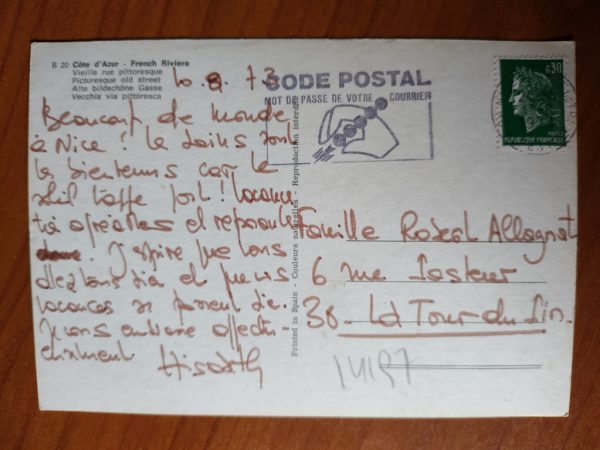 B 20 Côte d'Azur - French Riviera
Vieille rue pittoresque
Picturesque old street
Alte bildschöne Gasse
Vecchia via pittoresca
10.8.73
Beaucoup de monde
à Nice ! Les bains sont
les bienvenus car le
soleil tape fort ! Vacances
très agréables et reposantes
J'espère que vous
allez tous bien et que vos
vacances se passent bien.
Je vous embrasse affectu-
eusement
CODE POSTAL
MOT DE PASSE DE VOTRE COURRIER
0,30
REPUBLIQUE FRANÇAISE
Printed in Spain - Couleurs naturelles - Reproduction interdite
Famille Robert Allagnat
6 rue Pasteur
38 - La Tour du Pin